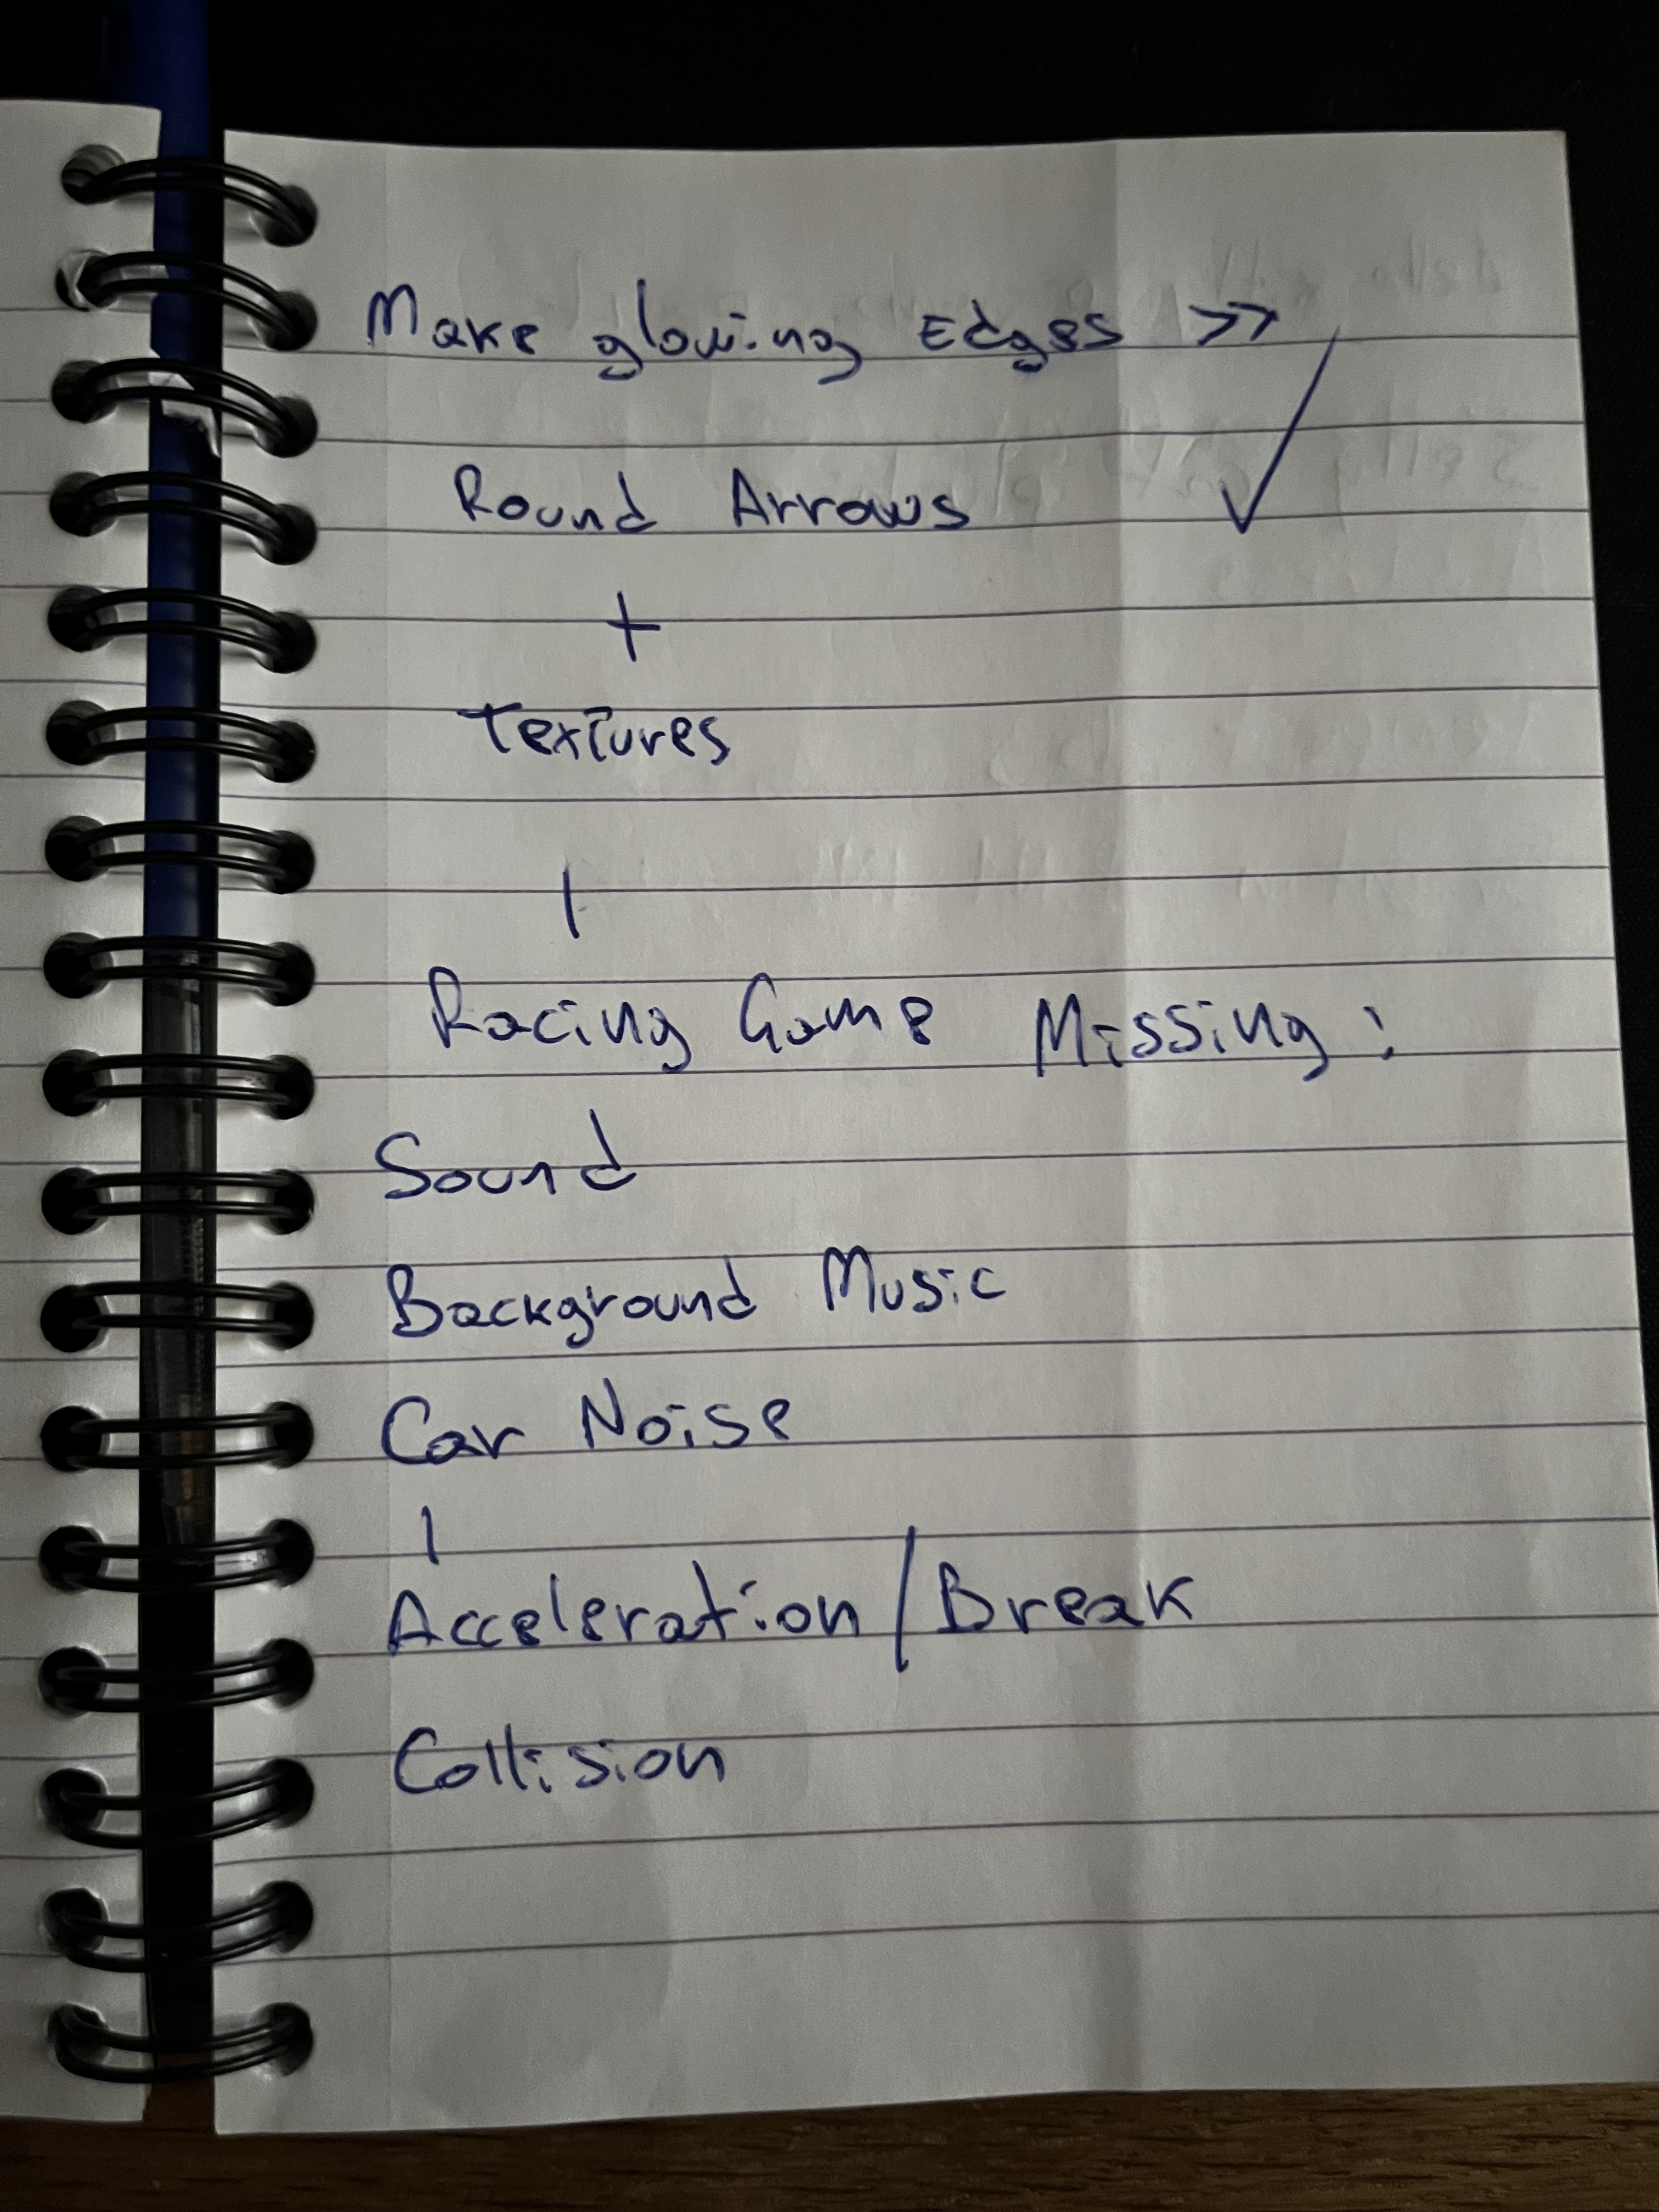 Make glowing Edges >>
Round Arrows ✓
+
Textures
|
Racing Game Missing:
Sound
Background Music
Car Noise
|
Acceleration/Break
Collision